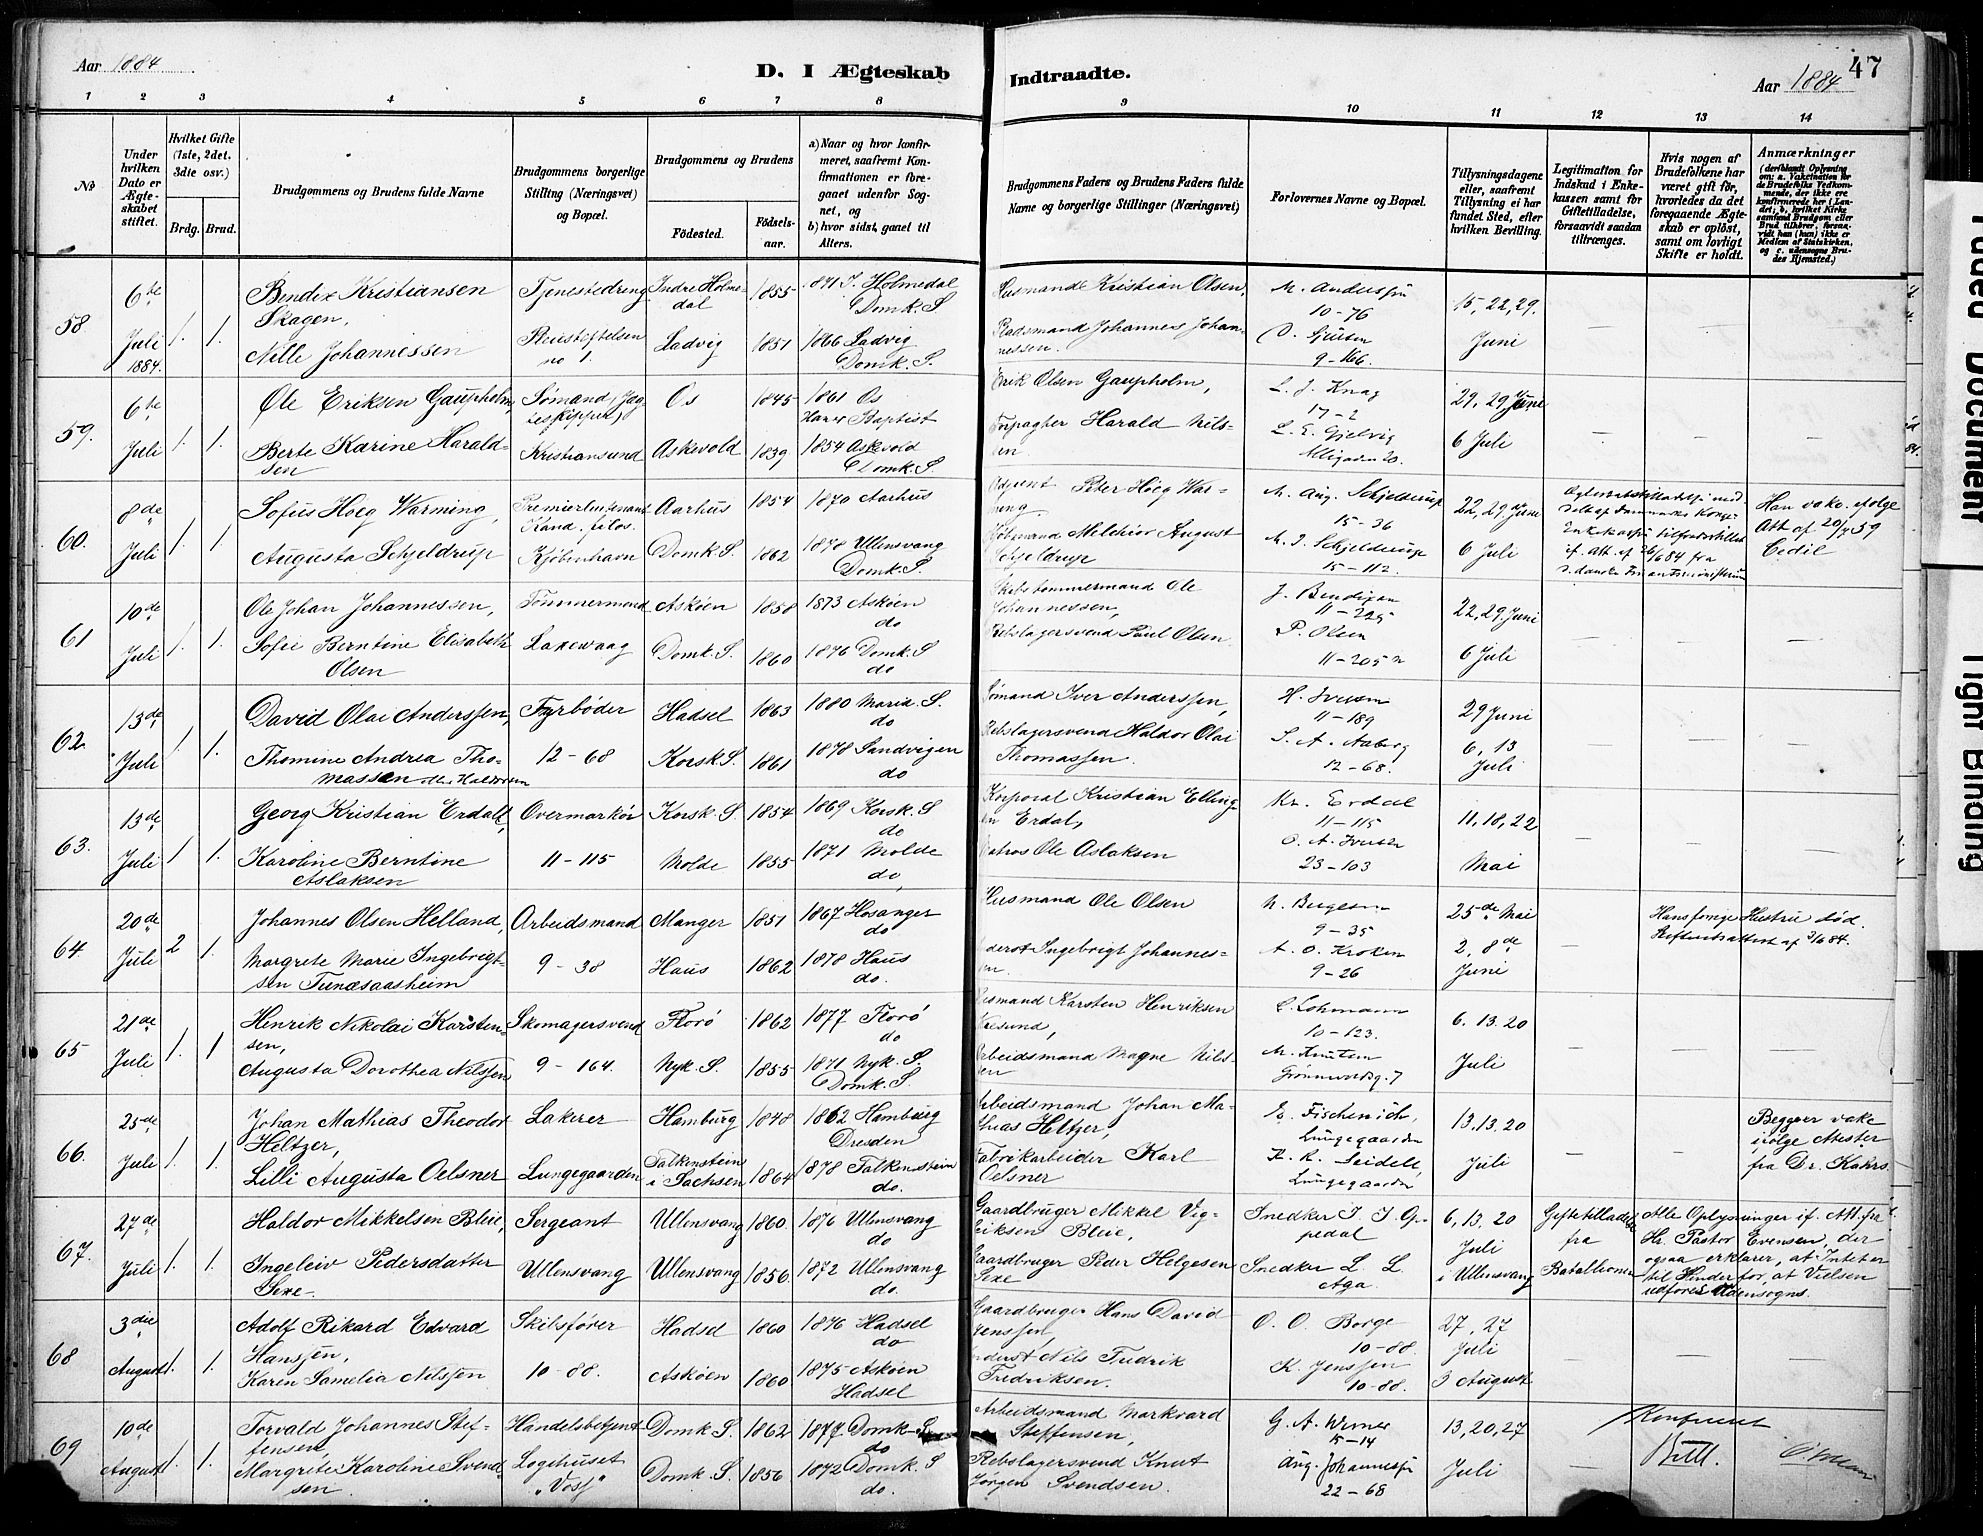 Aar 1884
D. I Ægteskab
Indtraadte.
Aar 1884
47
1 2 3 4 5 6 7 8 9 10 11 12 13 14
No
Under hvilken Dato er Ægteskabet stiftet.
Hvilket Gifte (1ste, 2det. 3die osv.)
Brdg. Brud.
Brudgommens og Brudens fulde Navne
Brudgommens borgerlige Stilling (Næringsvei) og Bopæl.
Brudgommens og Brudens
Fødested.
Fødselsaar.
a) Naar og hvor konfirmeret, saafremt Konfirmationen er foregaaet udenfor Sognet, og
b) hvor sidst, gaaet til Alters.
Brudgommens Faders og Brudens Faders fulde Navne og borgerlige Stillinger (Næringsvei)
Forlovernes Navne og Bopæl.
Tillysningsdagene eller, saafremt Tillysning ei har fundet Sted, efter hvilken Bevilling.
Legitimation for Indskud i Enkekassen samt for Giftetilladelse, forsaavidt saadan tiltrænges.
Hvis nogen af Brudefolkene har været gift før, hvorledes da det foregaaende Ægteskab er opløst, samt om lovligt Skifte er holdt.
Anmærkninger
(deriblandt Oplysning om: a. Vakcination for de Brudefolks Vedkommende, der ikke ere konfirmerede her i Landet; b. hvilket Kirkesamfund Brudgom eller Brud tilhører, forsaavidt han (hun) ikke er Medlem af Statskirken, og c. udensogns Brudes Hjemsted.)
58. 6te Juli 1884. 1. 1.
Bendix Kristiansen Skagen,
Nille Johannessen
Tjenestedreng
no 1.
Indre Holmedal 1855 1871 I. Holmedal Domk. S
Ladvig 1851 1866 Ladvig Domk. S.
Husmand Kristian Olsen,
Pladsmand Johannes Johannessen.
M. Anderssen
10-76
9-166.
15, 22, 29. Juni
59. 6te Juli 1. 1.
Ole Eriksen Gaupholm,
Berte Karine Haraldsen
Sømand (Jagteskipper)
Kristiansund
Os 1845 1861 Os
Han er Baptist
Askevold 1839 1854 Askevold Domk. S.
Erik Olsen Gaupholm,
Forpagter Harald Nilsen
L. J. Knag
17-2
L. E. Gjelvig
22, 29 Juni
6 Juli
60. 8de Juli 1 1
Sofus Høeg Warming,
Augusta Schjeldrup
Premierlieutenant Kand. filos.
Kjøbenhavn
Aarhus 1854 1870 Aarhus
Domk. S. 1862 1878 Ullensvang Domk. S.
Adjunkt Peter Høeg Warming.
Kjøbmand Melchior August Schjeldrup
M. Aug. Schjelderup
15-36
M. J. Schjelderup
15-112.
22, 29 Juni
6 Juli
Han vakc. ifølge Att. af 20/7 59
61 10de Juli 1. 1.
Ole Johan Johannessen,
Sofie Berntine Elisabeth Olsen
Tømmermand
Laxevaag
Askøen 1858 1873 Askøen do
Domk. S. 1860 1876 Domk. S do
Skibstømmermand Ole Johannessen,
Rebslagersvend Paul Olsen
J. Bendixen
11-225
P. Olsen
11-205 a
22, 29. Juni
6 Juli
62. 13de Juli 1 1.
David Olai Anderssen,
Thomine Andrea Thomassen eller Haldorsen
Fyrbøder
12-68
Hadsel 1863 1880 Maria S. do
Korsk. S. 1861 1878 Sandvigen do
Sømand Iver Anderssen,
Rebslagersvend Haldor Olai Thomassen.
H. Iversen
11-189
S. A. Aaberg
12-68.
29 Juni
6, 13 Juli
63. 13de Juli 1 1.
Georg Kristian Erdal,
Karoline Berntine Aslaksen
Overmarkør
11-115
Korsk. S. 1854 1869 Korsk. S do
Molde 1855 1871 Molde do
Korporal Kristian Ellingsen Erdal,
Matros Ole Aslaksen
Kr. Erdal
11-115
O. A. Iversen
23-103
11, 18, 22
Mai
64. 20de Juli 2 1.
Johannes Olsen Helland,
Margrete Marie Ingebrigtsen Tunesaasheim
Arbeidsmand
9-38
Manger 1851 1867 Hosanger do
Haus 1862 1878 Haus do.
Husmand Ole Olsen
Inderst Ingebrigt Johannessen.
9-35
A. O. Kroken
9-26
25de Mai
2, 8de Juni
Hans forrige Hustru død.
Skifteretsattest af 3/6 84.
65 21de Juli 1. 1
Henrik Nikolai Karstensen,
Augusta Dorothea Nilssen
Skomagersvend
9-164.
Florø 1862 1877 Florø do
Nyk. S. 1855 1871 Nyk. S. Domk. S.
Karsten Henriksen
Arbeidsmand Magne Nilsen
C. Lohmann
10-123.
M. Knutsen
6. 13. 20
Juli
66. 25de Juli 1. 1.
Johan Mathias Theodor Heltzer,
Lilli Augusta Oelsner
Lakerer
Lungegaarden
Hamburg 1848 1862 Hamburg Dresden
Falkenstein i Sachsen 1864 1878 Falkenstein do.
Arbeidsmand Johan Mathias Heltzer,
Fabrikarbeider Karl Oelsner
Lungegaarden
K. R. Seidell,
Lungegaarden
13. 13. 20
Juli
Begge vakc ifølge Attester fra Dr. Kahrs.
67. 27de Juli 1. 1.
Haldor Mikkelsen Bleie,
Ingeleiv Pedersdatter Sexe.
Sergeant
Ullensvang
Ullensvang 1860. 1876 Ullensvang do
Ullensvang 1856. 1872 Ullensvang do.
Gaardbruger Mikkel Vigleiksen Bleie,
Gaardbruger Peder Helgesen Sexe
Snedker J. J. Opedal
Snedker L. L. Aga
6, 13. 20 Juli i Ullensvang
Giftetilladelse fra Batallionen
Alle Oplysninger if. Att. fra Hr. Pastor Evensen, der ogsaa erklærer, at Intet er til Hinder for, at Vielsen udføres udensogns.
68 3die August 1. 1.
Adolf Rikard Edvard Hanssen,
Karen Samelia Nilssen
Skibsfører
10-88.
Hadsel 1860 1876 Hadsel do
Askøen 1860 1875 Askøen Hadsel
Gaardbruger Hans David Jenssen,
Inderst Nils Fredrik Fredriksen.
O. O. Borge
10-88.
K. Jenssen
10-88.
27, 27 Juli
3 August
69 10de August 1. 1.
Torvald Johannes Steffensen
Margrite Karoline Svendsen.
Handelsbetjent
Logihuset "Voss"
Domk. S. 1862 1877 Domk. S. do
Domk. S. 1856 1872 Domk. S do.
Arbeidsmand Markvard Steffensen,
Rebslagersvend Knut Jørgen Svendsen.
G. A. Werner
15-14
Aug. Johannessen
22-68
13, 20, 27
Juli
Konfereret
Tight Binding